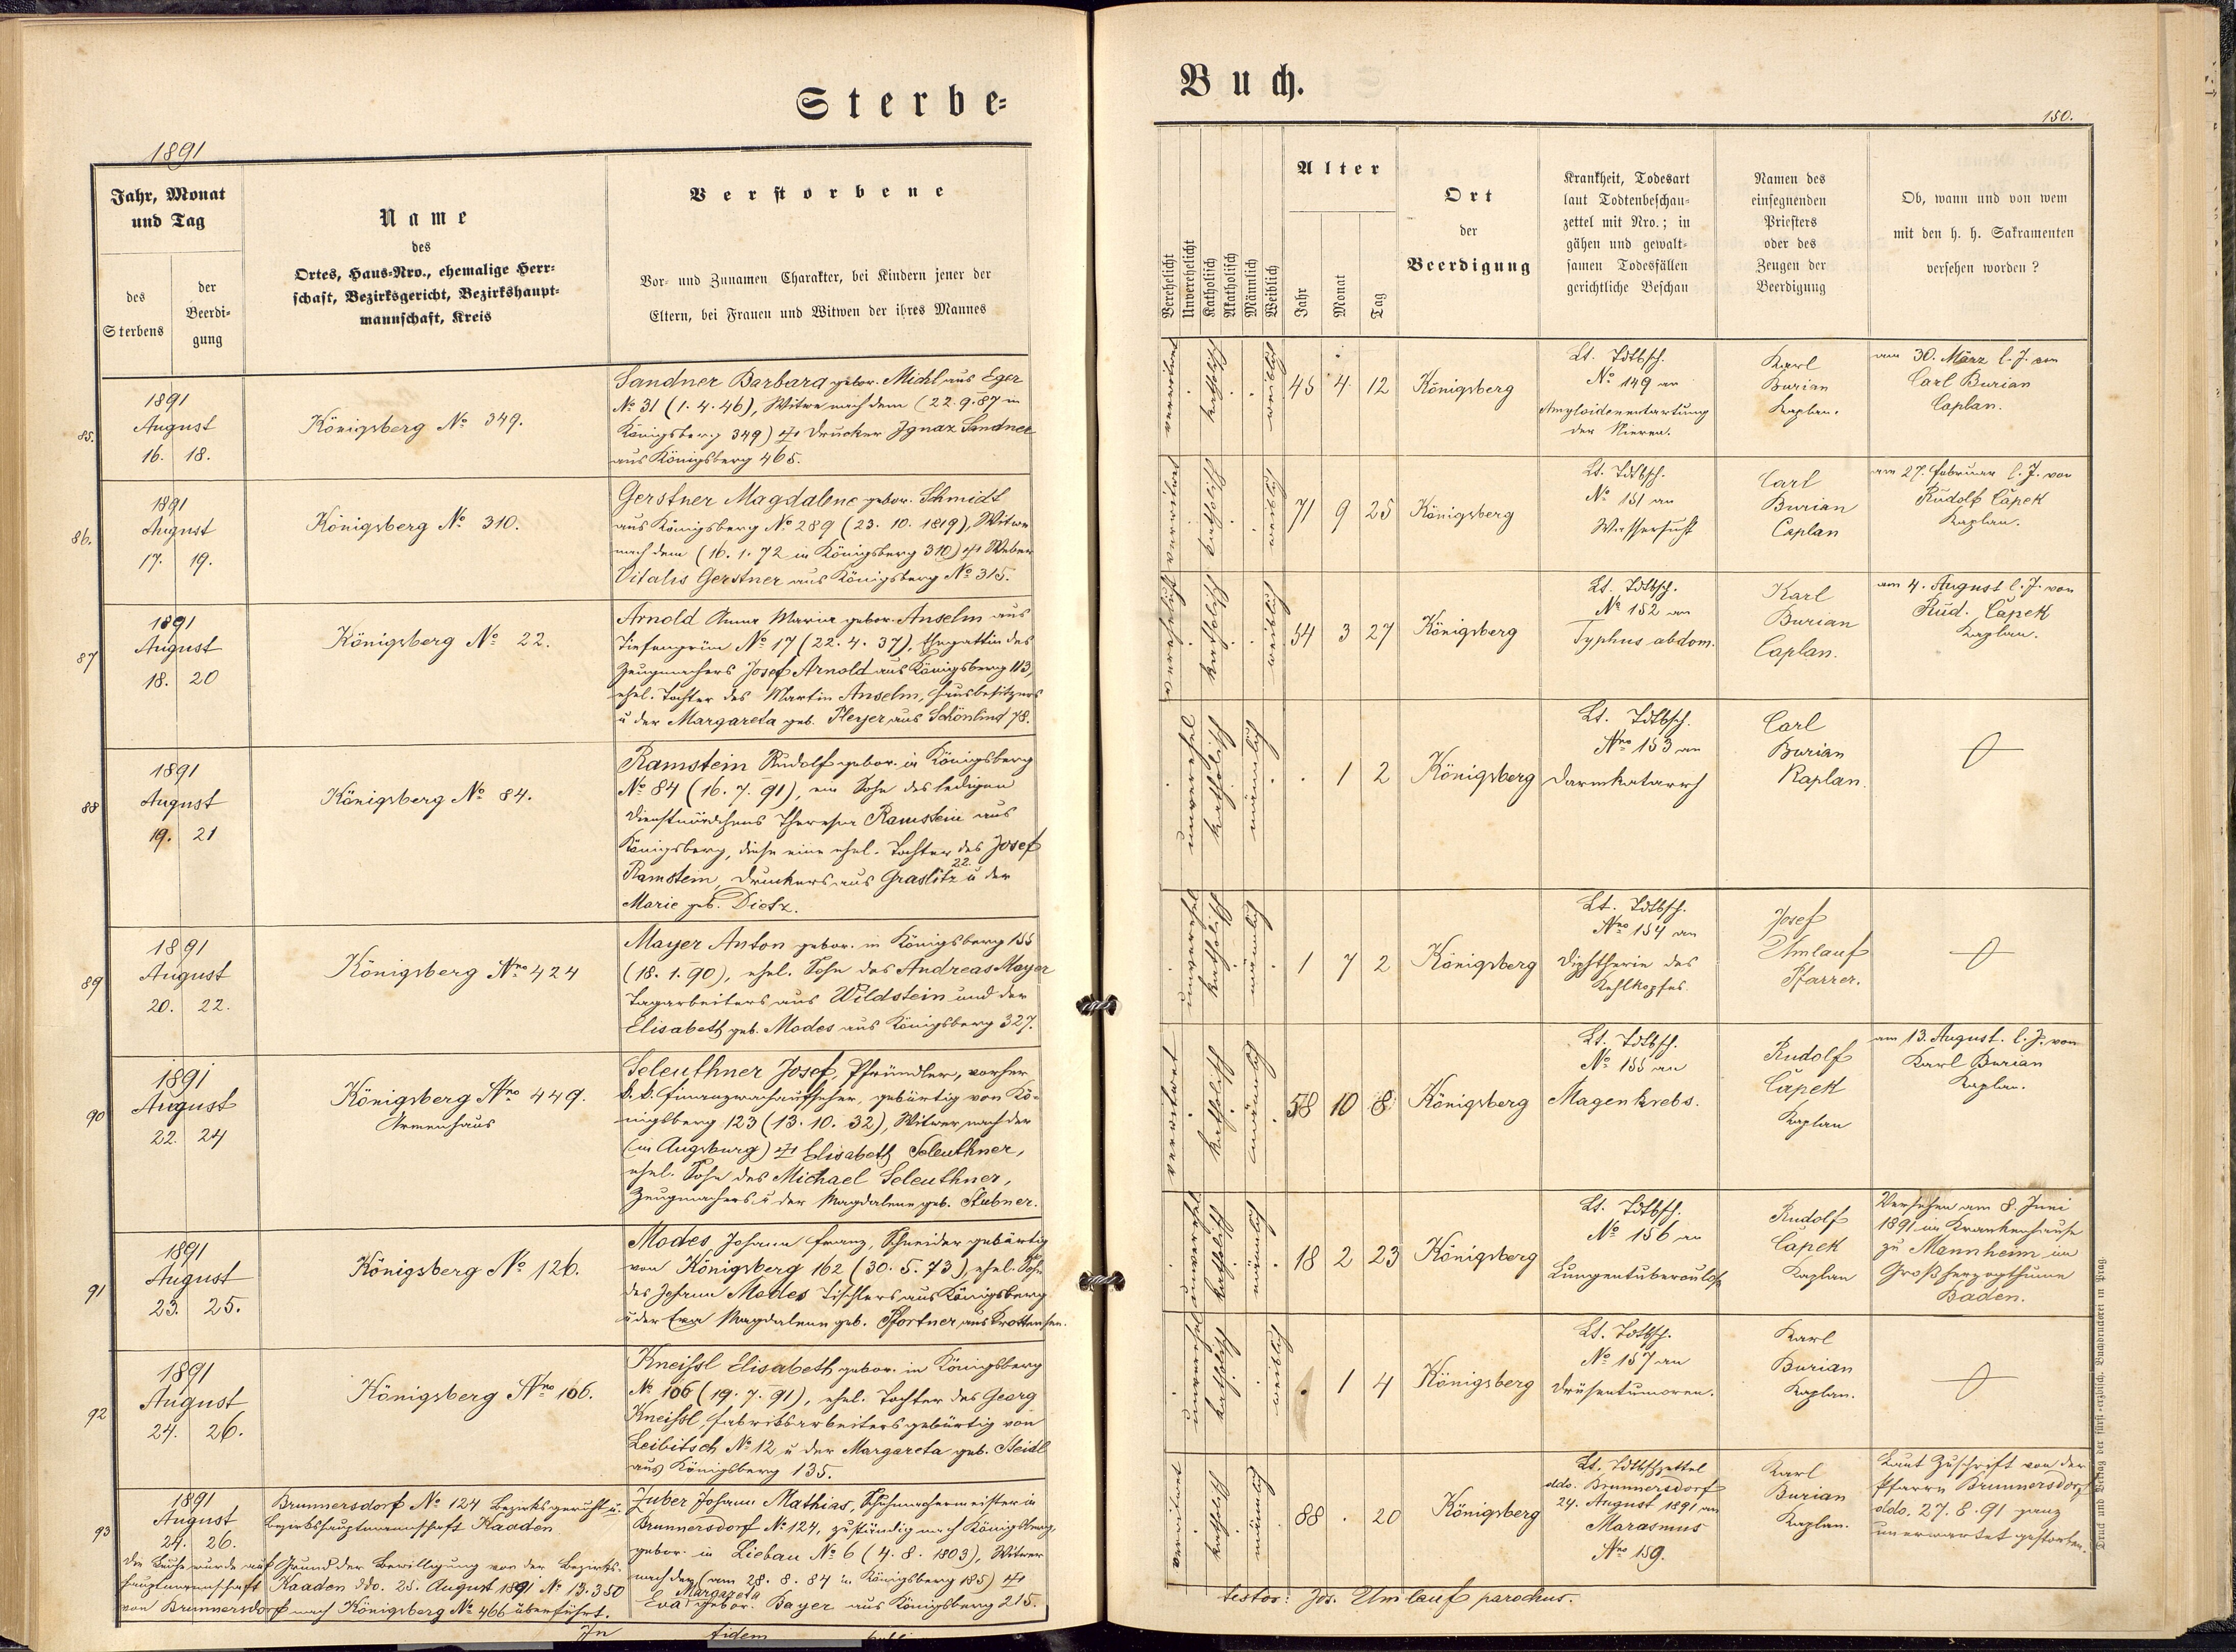 Sterbe=
1891
Jahr, Monat
und Tag
des
Sterbens
der
Beerdi=
gung
Name
des
Ortes, Haus-Nro., ehemalige Herr=
schaft, Bezirksgericht, Bezirkshaupt=
mannschaft, Kreis
Verstorbene
Vor- und Zunamen Charakter, bei Kindern jener der
Eltern, bei Frauen und Witwen der ihres Mannes
85.
1891
August
16. 18.
Königsberg No 349.
Sandner Barbara gebor. Michl aus Eger
No 31 (1. 4. 46), Witwe nach dem (22. 9. 87 in
Königsberg 349) † Drucker Ignaz Sandner
aus Königsberg 465.
86.
1891
August
17. 19.
Königsberg No 310.
Gerstner Magdalena gebor. Schmidt
aus Königsberg No 289 (23. 10. 1819), Witwe
nach dem (16. 1. 72 in Königsberg 310) † Weber
Vitalis Gerstner aus Königsberg No 315.
87
1891
August
18. 20
Königsberg No 22.
Arnold Anna Maria gebor. Anselm aus
Tiefengrün No 17 (22. 4. 37), Ehegattin des
Zeugmachers Josef Arnold aus Königsberg 113,
ehel. Tochter des Martin Anselm, Hausbesitzers
u der Margareta geb. Heyer aus Schönlind 78.
88
1891
August
19. 21
Königsberg No 84.
Ramstein Rudolf gebor. in Königsberg
No 84 (16. 7. 91), ein Sohn des ledigen
Dienstmädchens Theresia Ramstein aus
Königsberg, diese eine ehel. Tochter des Josef
Ramstein, Druckers aus Graslitz 22. u der
Marie geb. Dietz.
89
1891
August
20. 22.
Königsberg Nro 424
Mayer Anton gebor. in Königsberg 155
(18. 1. 90), ehel. Sohn des Andreas Mayer
Tagarbeiters aus Wildstein und der
Elisabeth geb. Modes aus Königsberg 327.
90
1891
August
22. 24
Königsberg Nro 449.
Armenhaus
Seleuthner Josef, Pfründler, vorher
k. k. Finanzwachaufseher, gebürtig von Kö=
nigsberg 123 (13. 10. 32), Witwer nach der
(in Augsburg) † Elisabeth Seleuthner,
ehel. Sohn des Michael Seleuthner,
Zeugmachers u der Magdalena geb. Stubner.
91
1891
August
23. 25.
Königsberg No 126.
Modes Johann Franz, Schneider gebürtig
von Königsberg 162 (30. 5. 73), ehel. Sohn
des Johann Modes Tischlers aus Königsberg
u der Eva Magdalena geb. Pfortner aus Krottensee.
92
1891
August
24. 26.
Königsberg Nro 106.
Kneissl Elisabeth gebor. in Königsberg
No 106 (19. 7. 91), ehel. Tochter des Georg
Kneissl, Fabriksarbeiters gebürtig von
Leibitsch No 12 u der Margareta geb. Steidl
aus Königsberg 135.
93
1891
August
24. 26.
Brunnersdorf No 124 Bezirksgericht u.
Bezirkshauptmannschaft Kaaden
Die Leiche wurde auf Grund der Bewilligung von der Bezirks=
hauptmannschaft Kaaden ddo. 25. August 1891 No 13.350
von Brunnersdorf nach Königsberg No 466 überführt.
Zuber Johann Mathias, Schuhmachermeister in
Brunnersdorf No 124, zuständig nach Königsberg,
gebor. in Liebau No 6 (4. 8. 1803), Witwer
nach der (am 28. 8. 84 in Königsberg 185) †
Eva Margareta gebor. Bayer aus Königsberg 215.
In fidem
Buch.
150.
Verehelicht
Unverehelicht
Katholisch
Akatholisch
Männlich
Weiblich
Alter
Jahr
Monat
Tag
Ort
der
Beerdigung
Krankheit, Todesart
laut Todtenbeschau=
zettel mit Nro.; in
gähen und gewalt=
samen Todesfällen
gerichtliche Beschau
Namen des
einsegnenden
Priesters
oder des
Zeugen der
Beerdigung
Ob, wann und von wem
mit den h. h. Sakramenten
versehen worden?
verwitwet katholisch weiblich 45 4 12 Königsberg
Lt. Tdtbsch.
No 149 an
Amyloidenentartung
der Nieren.
Karl
Burian
Kaplan.
am 30. März l. J. von
Carl Burian
Caplan.
verwitwet katholisch weiblich 71 9 25 Königsberg
Lt. Tdtbsch.
No 151 an
Wassersucht
Carl
Burian
Caplan
am 27. Februar l. J. von
Rudolf Čapek
Kaplan.
katholisch weiblich 54 3 27 Königsberg
Lt. Tdtbsch.
No 152 an
Typhus abdom.
Karl
Burian
Caplan.
am 4. August l. J. von
Rud. Čapek
Kaplan.
unverehel katholisch männlich . 1 2 Königsberg
Lt. Tdtbsch.
Nro 153 an
Darmkatarrh
Carl
Burian
Kaplan.
unverehel katholisch männlich 1 7 2 Königsberg
Lt. Tdtbsch.
Nro 154 an
Diphtherie des
Kehlkopfes.
Josef
Umlauf
Pfarrer.
verwitwet katholisch männlich 58 10 8 Königsberg
Lt. Tdtbsch.
No 155 an
Magenkrebs.
Rudolf
Čapek
Kaplan
am 13. August. l. J. von
Karl Burian
Kaplan.
unverehel katholisch männlich 18 2 23 Königsberg
Lt. Tdtbsch.
No 156 an
Lungentuberculose
Rudolf
Čapek
Kaplan
Versehen am 8. Juni
1891 im Krankenhause
zu Mannheim im
Großherzogthume
Baden.
unverehel katholisch weiblich . 1 4 Königsberg
Lt. Tdtbsch.
No 157 an
Drüsentumoren.
Karl
Burian
Kaplan.
verwitwet katholisch männlich 88 . 20 Königsberg
Lt. Tdtbschzettel
ddo. Brunnersdorf
24. August 1891 an
Marasmus
Nro 159.
Karl
Burian
Kaplan.
Laut Zuschrift von der
Pfarre Brunnersdorf
ddo. 27. 8. 91 ganz
unerwartet gestorben.
testor: Jos. Umlauf parochus.
Druck und Verlag der fürst-erzbisch. Buchdruckerei in Prag.